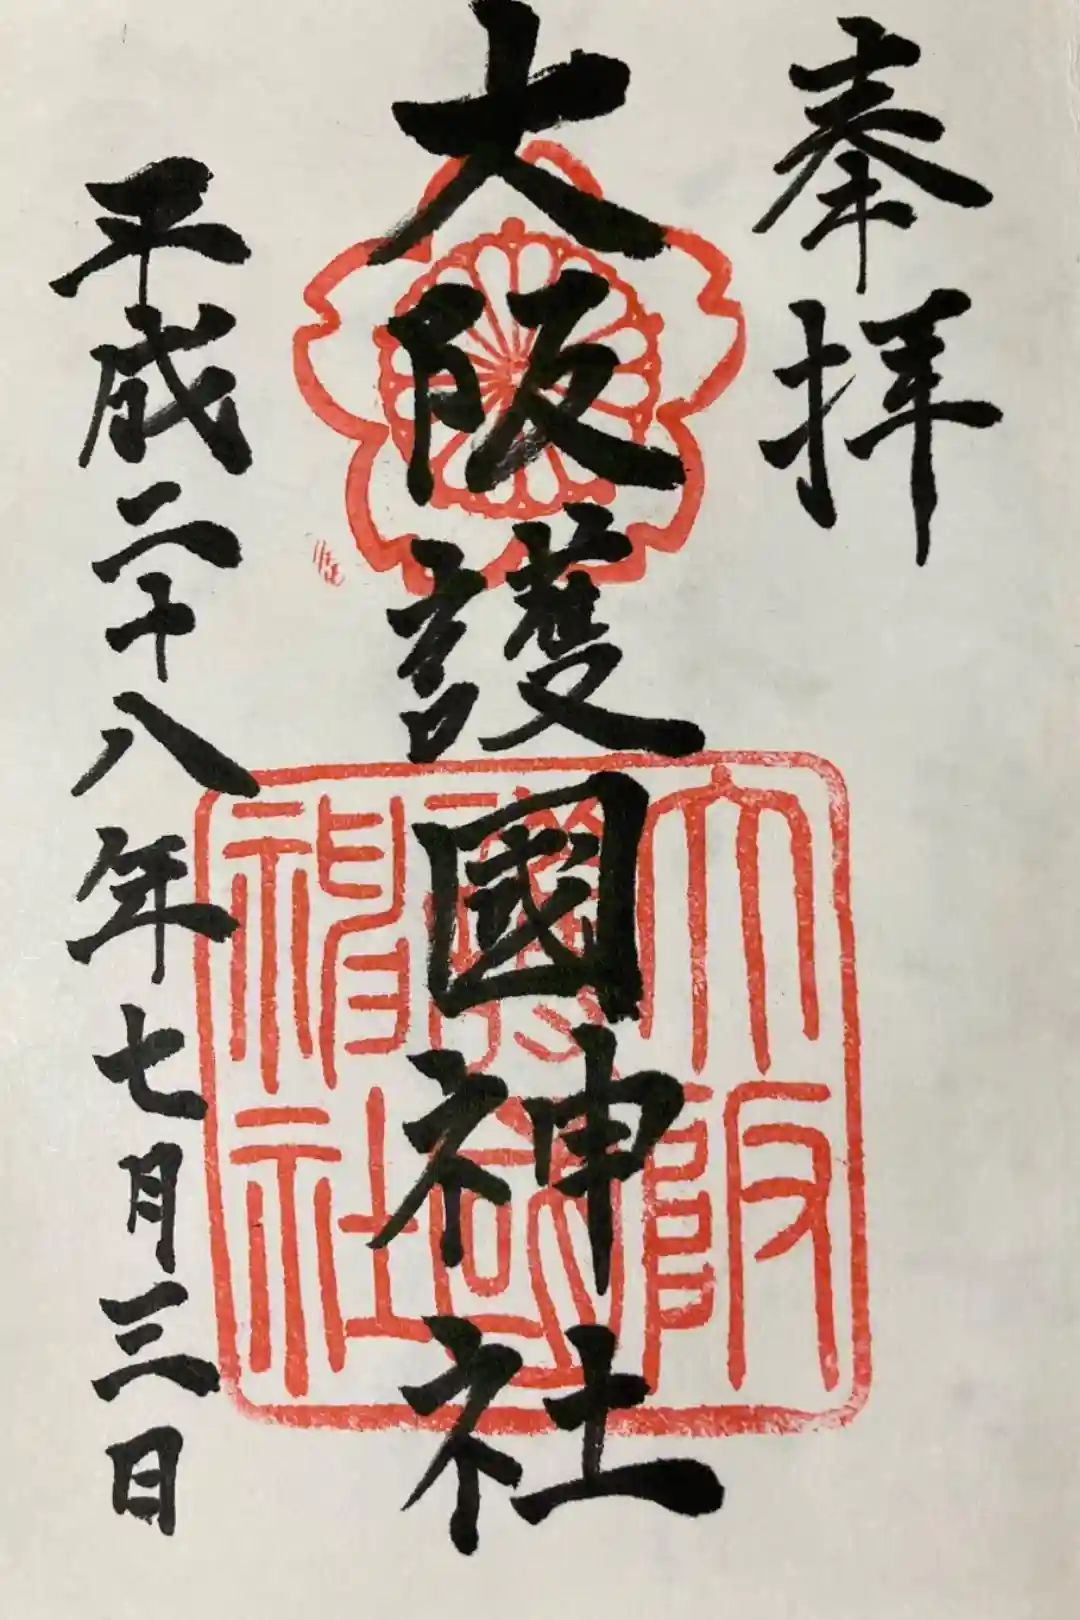 奉拝
大阪護國神社
平成二十八年七月三日
大阪護國神社